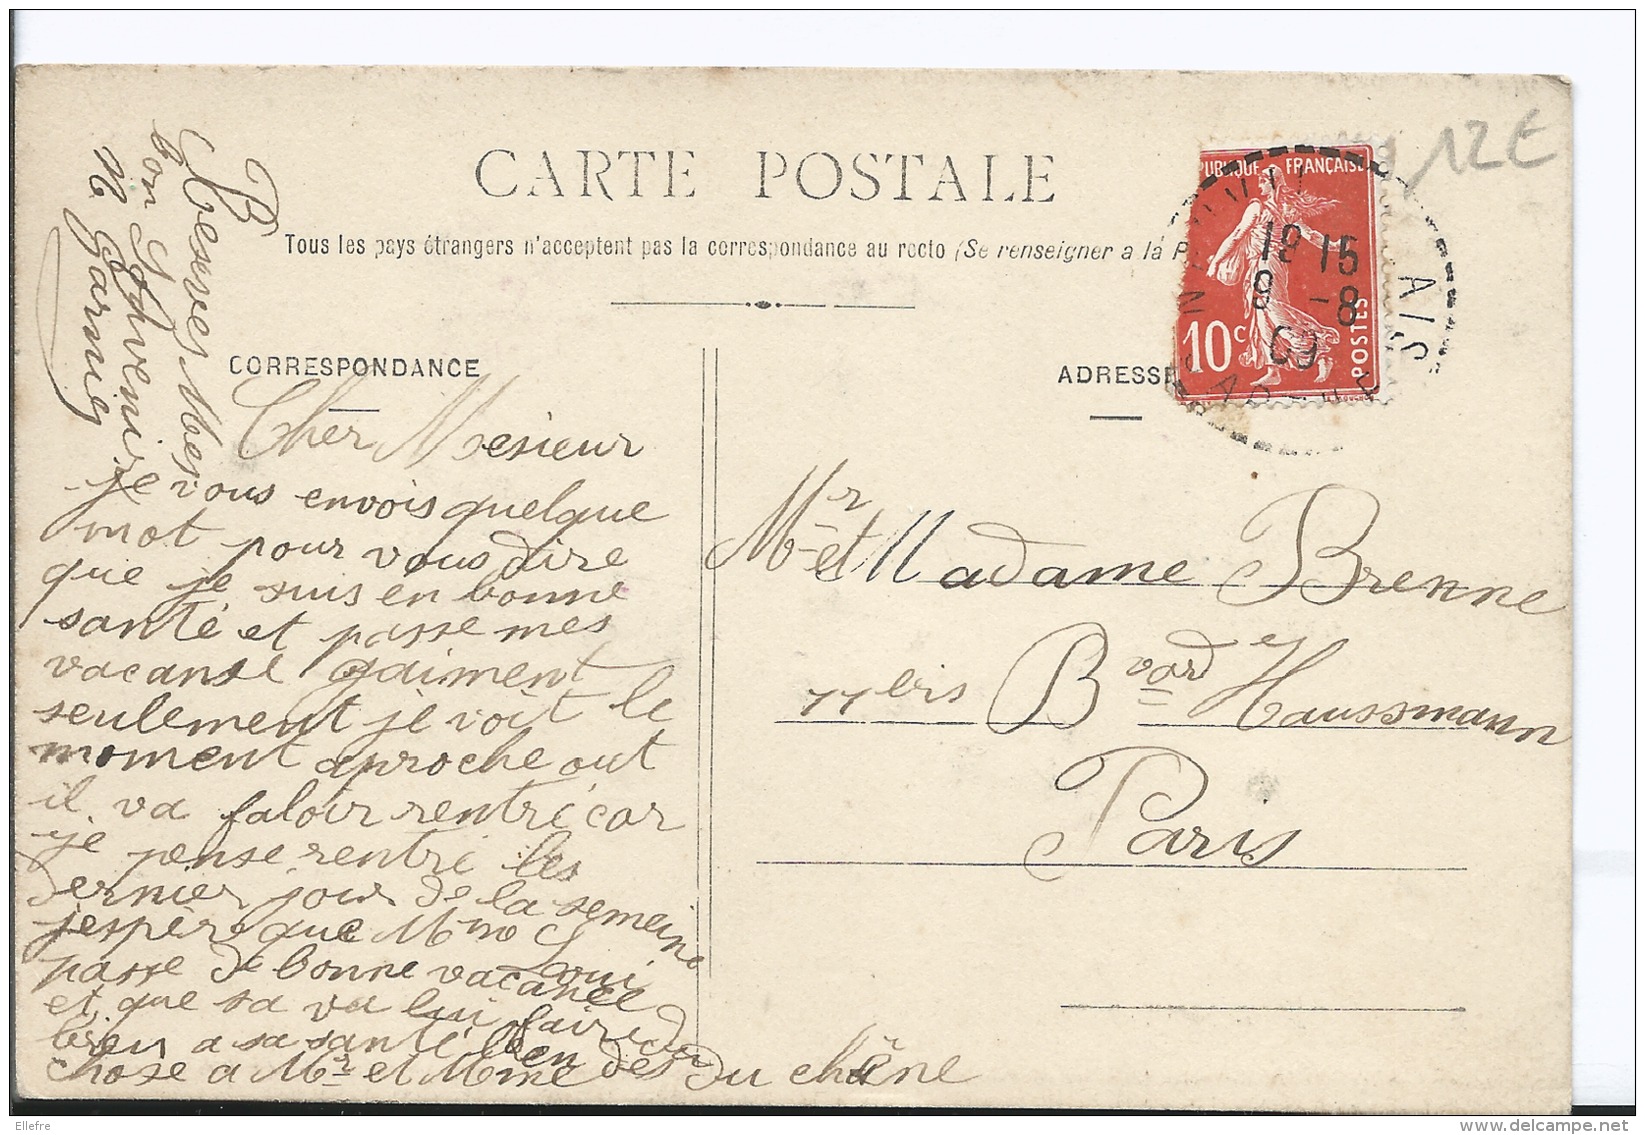 CARTE POSTALE
Tous les pays étrangers n'acceptent pas la correspondance au recto (Se renseigner a la P
CORRESPONDANCE
ADRESSE
RÉPUBLIQUE FRANÇAISE
10c
POSTES
18 15
8 -8
09
AIS
12 €
Cher Mesieur
je vous envois quelque
mot pour vous dire
que je suis en bonne
santé et passe mes
vacanse gaiment
seulement je voit le
moment aproche out
il va faloir rentré car
je pense rentré les
dernier jour de la semeine
jespère que Mme Loui
passe de bonne vacance
et que sa va lui faire du
bien a sa santé bien des
chose a Mr et Mme du chêne
Recevez Mes
bon Souvenire
M Garnier
Mr et Madame Brenne
77 Bvard Haussmann
Paris
Ellefre